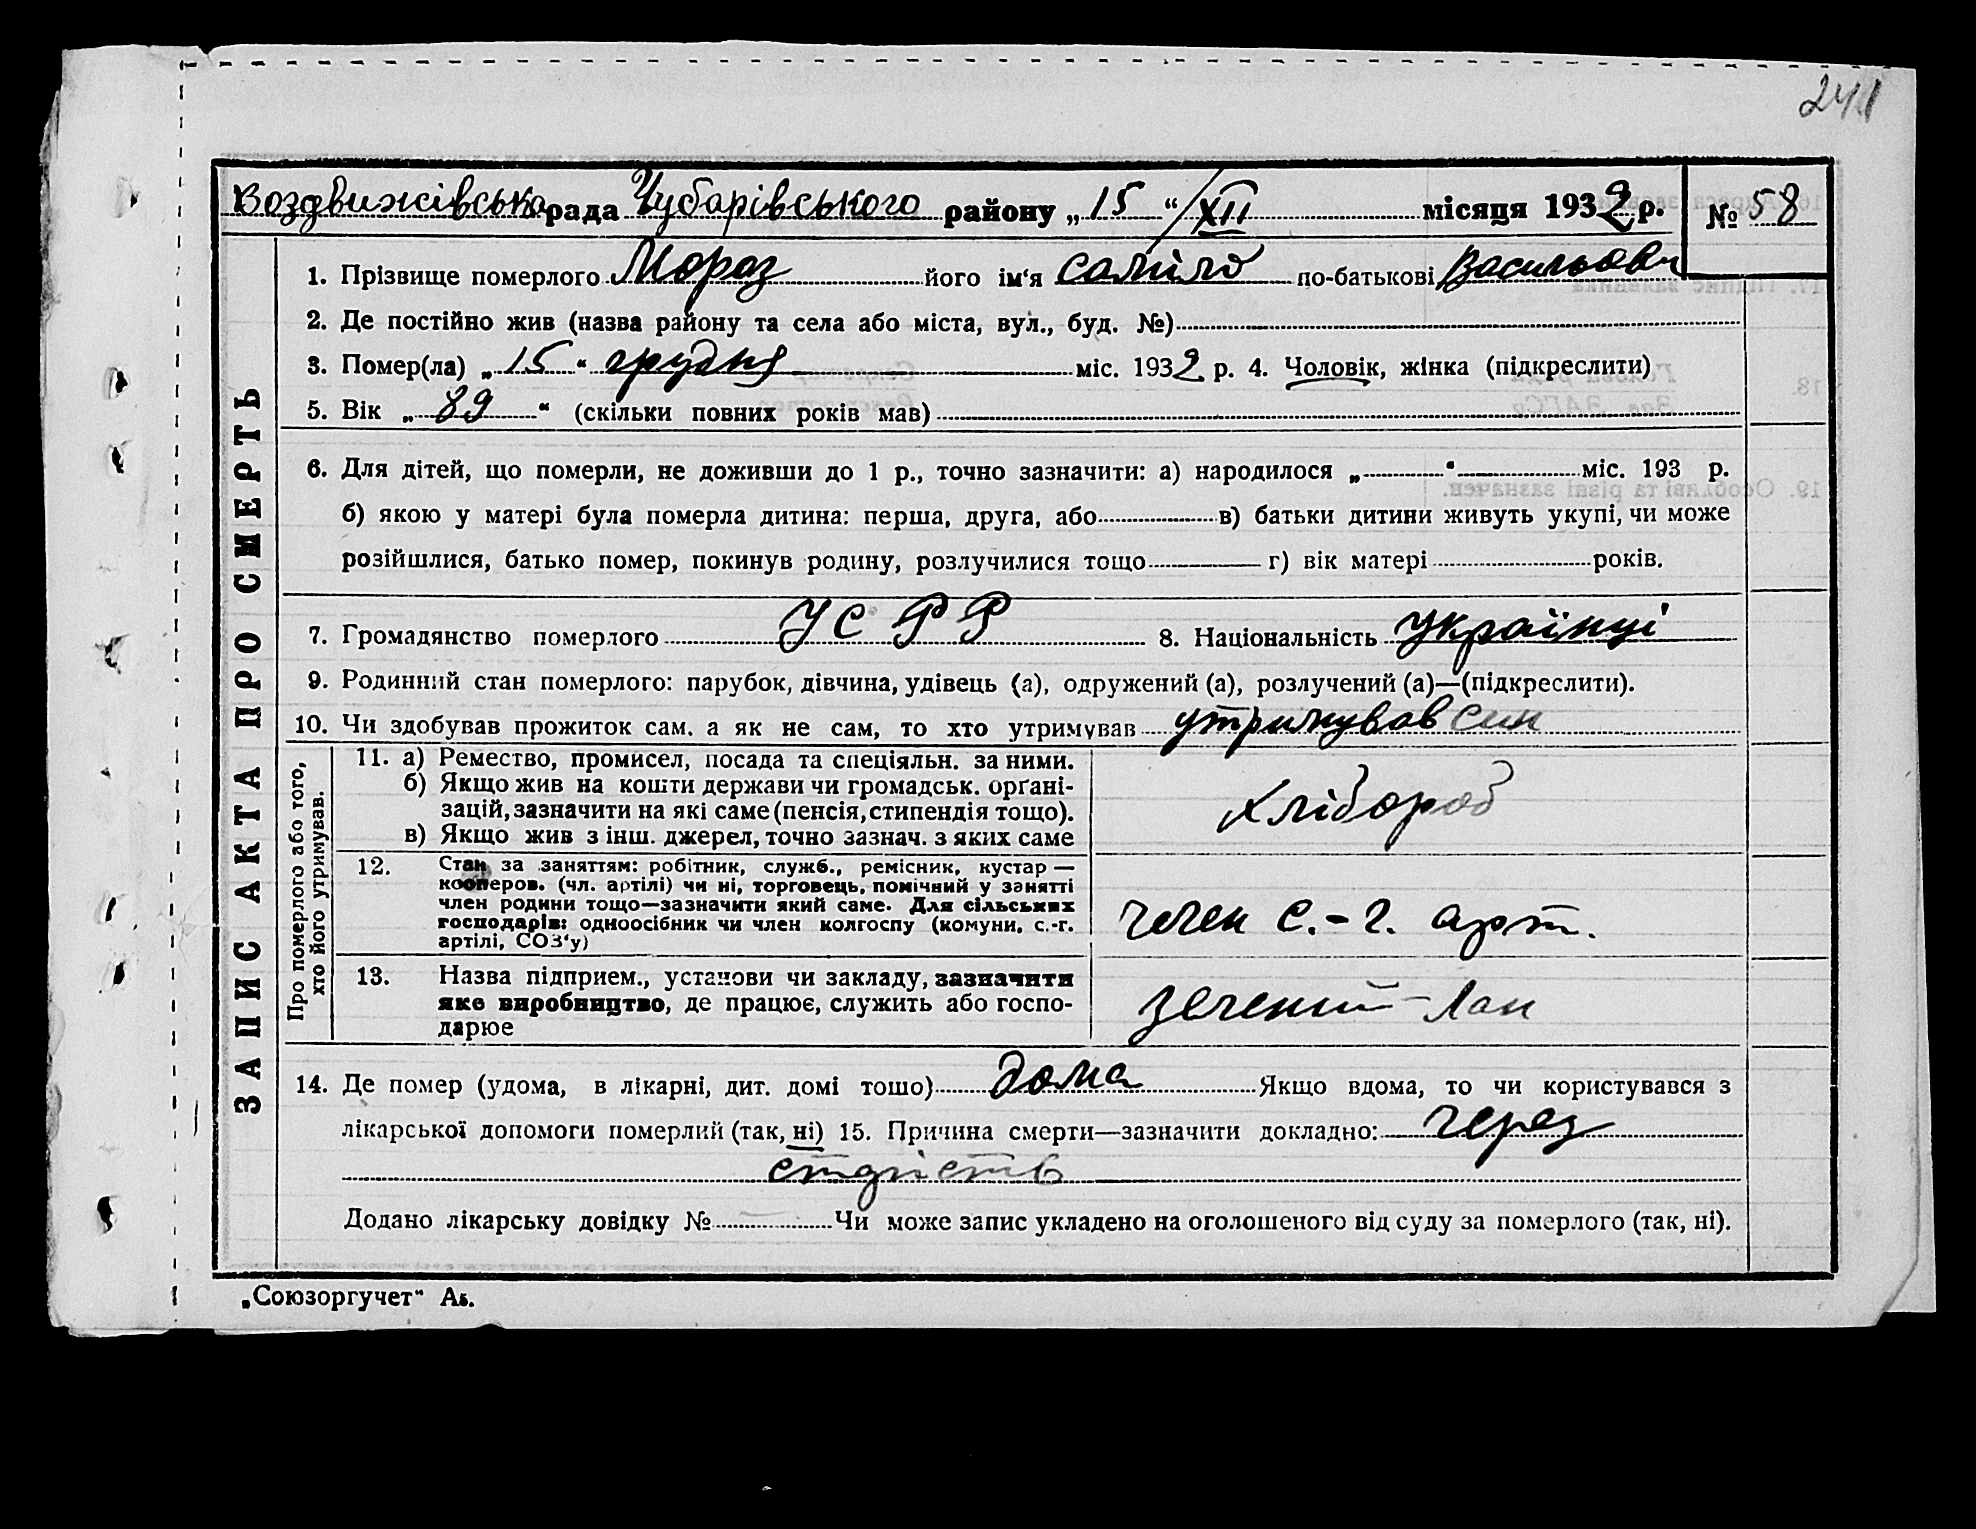 241
Воздвижівська рада Чубарівського району „15“/XII місяця 1932 р. № 58
ЗАПИС АКТА ПРО СМЕРТЬ
1. Прізвище померлого Мороз його ім‘я по-батькові Васильович
2. Де постійно жив (назва району та села або міста, вул., буд. №)
3. Помер(ла) „15“ грудня міс. 1932 р. 4. Чоловік, жінка (підкреслити)
5. Вік „89“ (скільки повних років мав)
6. Для дітей, що померли, не доживши до 1 р., точно зазначити: а) народилося „ “ міс. 193 р.
б) якою у матері була померла дитина: перша, друга, або в) батьки дитини живуть укупі, чи може
розійшлися, батько помер, покинув родину, розлучилися тощо г) вік матері років.
7. Громадянство померлого УСРР 8. Національність українці
9. Родинний стан померлого: парубок, дівчина, удівець (а), одружений (а), розлучений (а)—(підкреслити).
10. Чи здобував прожиток сам, а як не сам, то хто утримував утримував син
Про померлого або того,
хто його утримував.
11. а) Ремество, промисел, посада та спеціяльн. за ними.
б) Якщо жив на кошти держави чи громадськ. орґані-
зацій, зазначити на які саме (пенсія, стипендія тощо).
в) Якщо жив з інш. джерел, точно зазнач. з яких саме
хлібороб
12. Стан за заняттям: робітник, служб., ремісник, кустар —
кооперов. (чл. артілі) чи ні, торговець, помічний у занятті
член родини тощо—зазначити який саме. Для сільських
господарів: одноосібник чи член колгоспу (комуни, с.-г.
артілі, СОЗ‘у)
член с.-г. арт.
13. Назва підприєм., установи чи закладу, зазначити
яке виробництво, де працює, служить або госпо-
дарює
зелений-Лан
14. Де помер (удома, в лікарні, дит. домі тощо) дома Якщо вдома, то чи користувався з
лікарської допомоги померлий (так, ні) 15. Причина смерти—зазначити докладно: через
старість
Додано лікарську довідку № Чи може запис укладено на оголошеного від суду за померлого (так, ні).
„Союзоргучет“ Аб.